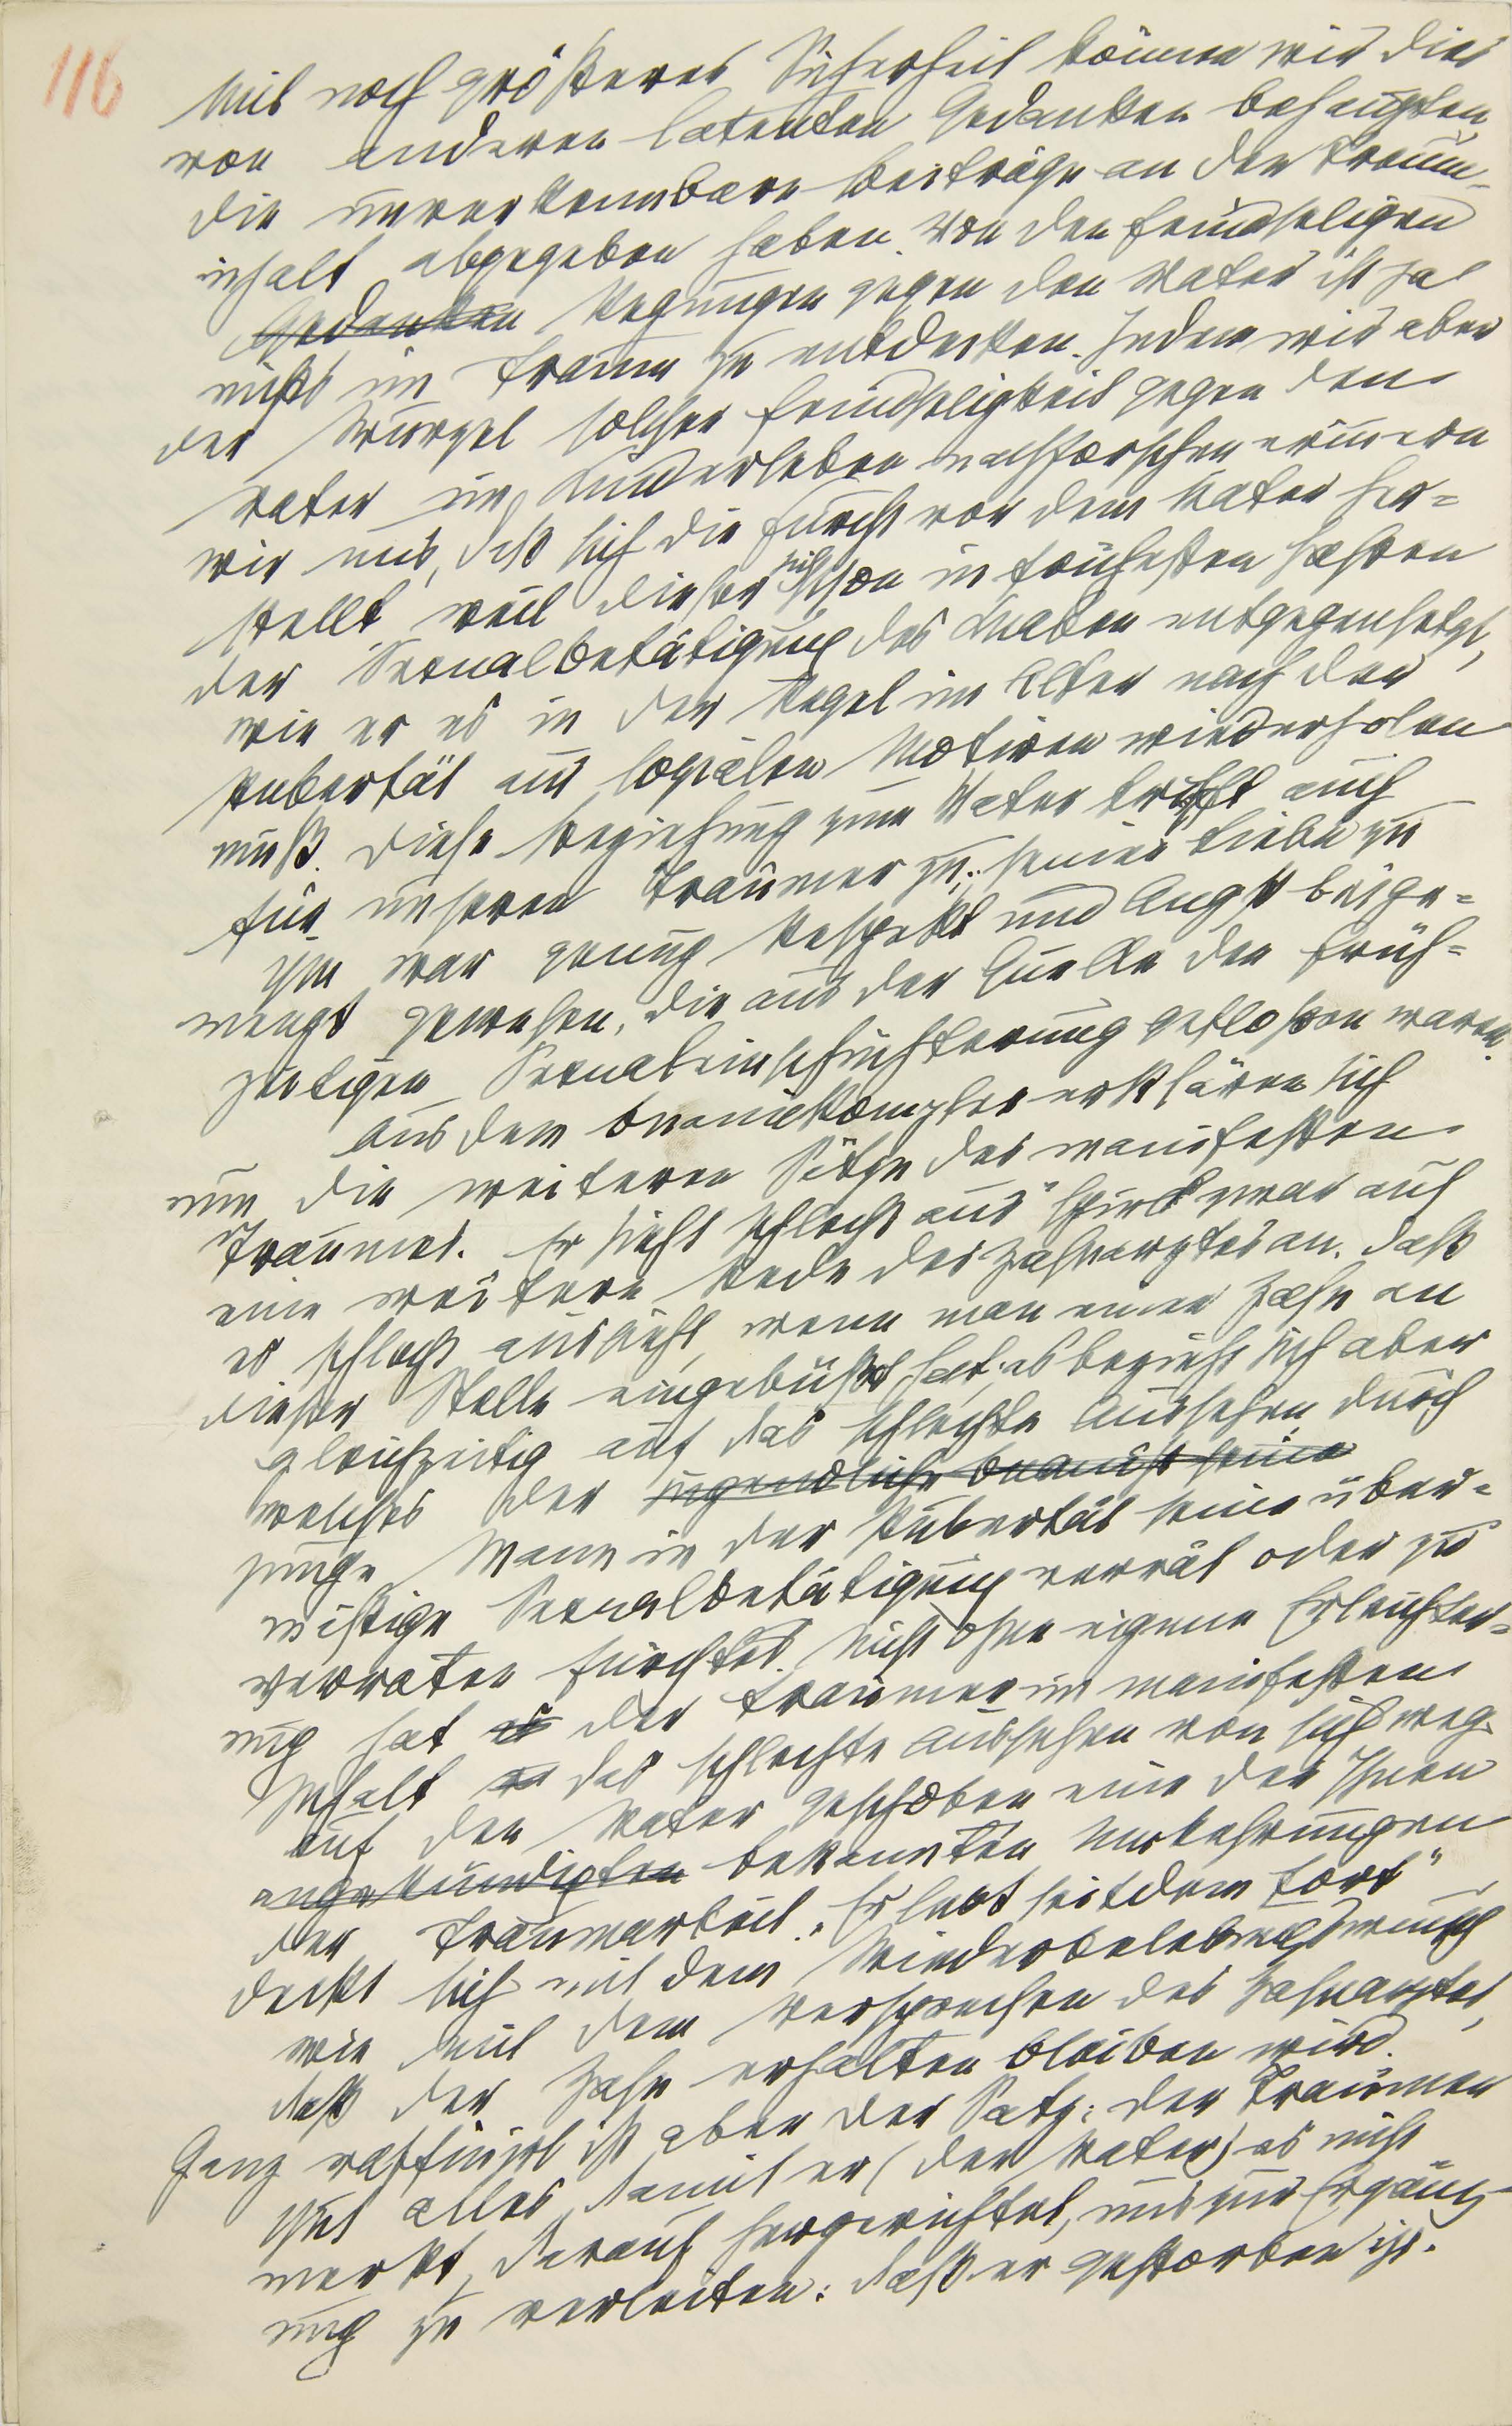 116
Mit noch größerer Sicherheit können wir dies
von anderen latenten Gedanken behaupten,
die unverkennbare Beiträge an den Traum-
inhalt abgegeben haben. Von den feindseligen
Gedanken Regungen gegen den Vater ist ja
nichts im Traum zu entdecken. Indem wir aber
der Wurzel solcher Feindseligkeit gegen den
Vater im Kinderleben nachforschen erinnern
wir uns, daß sich die Furcht vor dem Vater her=
stellt weil dieser sich schon in frühesten Jahren
der Sexualbetätigung des Knaben entgegensetzt,
wie er es in der Regel im Alter nach der
Pubertät aus sozialen Motiven wiederholen
muß. Diese Beziehung zum Vater trifft auch
für unseren Träumer zu; seiner Liebe zu
ihm war genug Respekt und Angst beige=
mengt gewesen, die aus der Quelle der früh=
zeitigen Sexualeinschüchterung geflossen waren.
Aus dem Onaniekomplex erklären sich
nun die weiteren Sätze des manifesten
Traumes. Er sieht schlecht aus" spielt zwar auf
eine weitere Rede des Zahnarztes an, daß
es schlecht aussieht, wenn man einen Zahn an
dieser Stelle eingebüßt hat; es bezieht sich aber
gleichzeitig auf das schlechte Aussehen, durch
welches der jugendliche Onanist seine
junge Mann in der Pubertät seine über=
mäßige Sexualbetätigung verrät oder zu
verraten fürchtet. Nicht ohne eigene Erleichter=
ung hat es der Träumer im manifesten
Inhalt das schlechte Aussehen von sich weg
auf den Vater geschoben eine der Ihnen
angekündigten bekannten Umkehrungen
der Traumarbeit. „Er lebt seitdem fort"
deckt sich mit dem Wiederbelebungswunsch
wie mit dem Versprechen des Zahnarztes,
daß der Zahn erhalten bleiben wird.
Ganz raffiniert ist aber der Satz: der Träumer
tut alles, damit er (der Vater) es nicht
merkt, darauf hergerichtet, uns zur Ergänz-
ung zu verleiten: daß er gestorben ist.